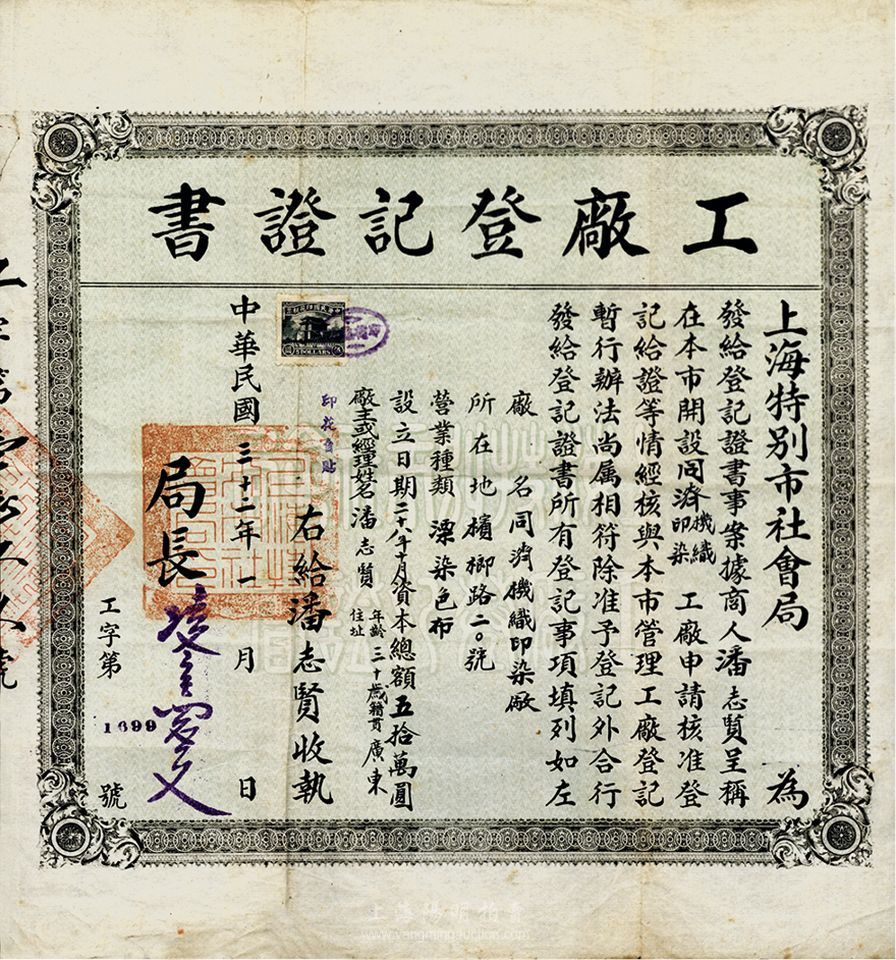 工廠登記證書
上海特別市社會局 為
發給登記證書事案據商人潘志賢呈稱
在本市開設同濟機織印染工廠申請核准登
記給證等情經核與本市管理工廠登記
暫行辦法尚屬相符除准予登記外合行
發給登記證書所有登記事項填列如左
廠名同濟機織印染廠
所在地檳榔路二〇號
營業種類 漂染色布
設立日期二十八年十月資本總額五拾萬圓
廠主或經理姓名潘志賢 年齡三十歲籍貫廣東 住址
印花自貼
右給潘志賢收執
中華民國三十二年一月 日
局長
工字第1699號
上海陽明拍賣
www.yangmingauction.com